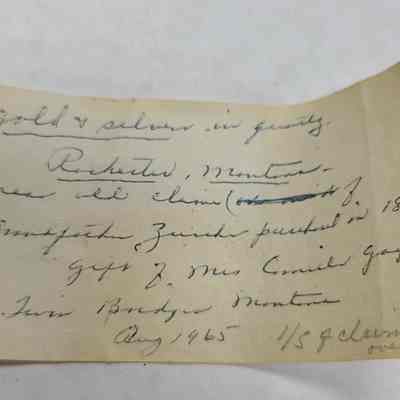 Gold & silver in quartz.
Rochester, Montana -
near old claim ( of
Grandfather purchased in 18
Gift of Mrs
Twin Bridges Montana
Aug 1965 1/5 of claim
over